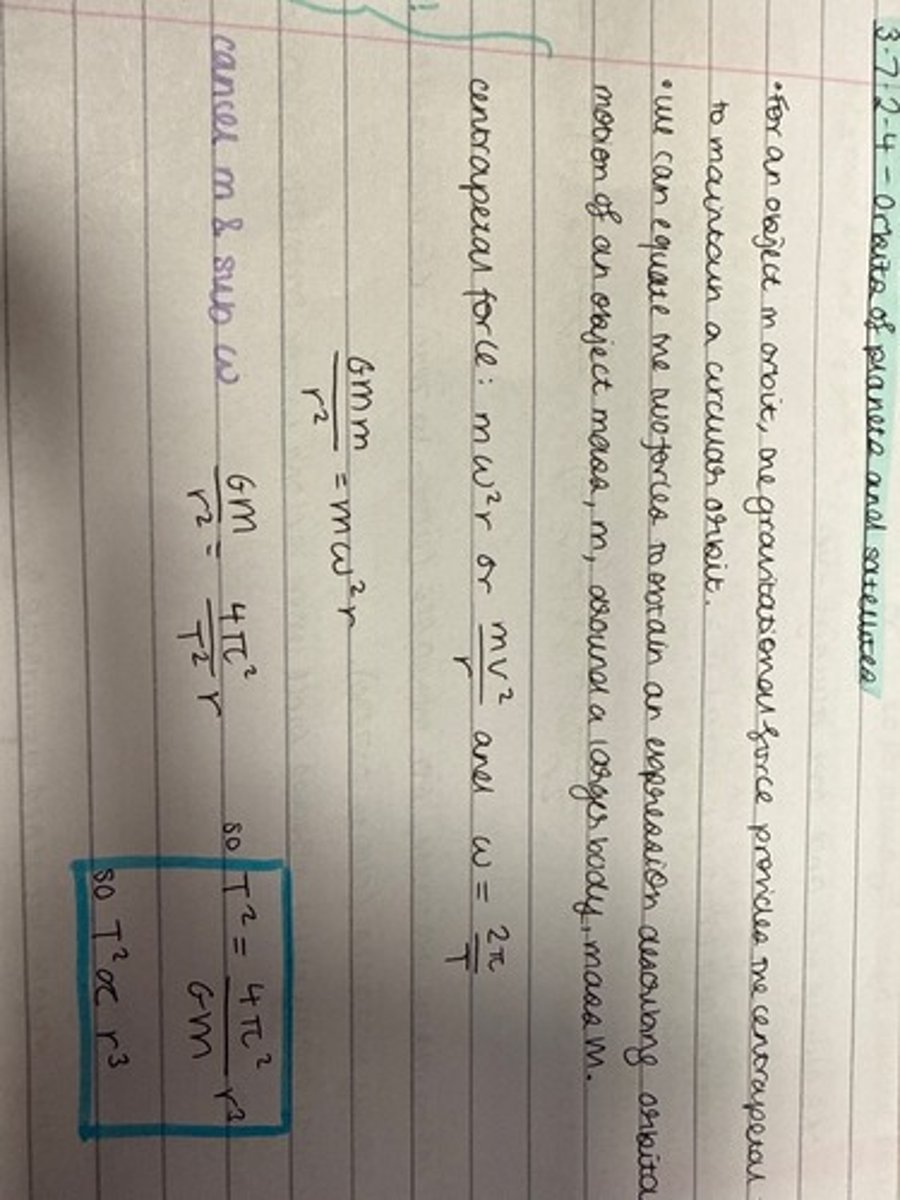 3.7.2.4 - Orbits of planets and satellites
• For an object in orbit, the gravitational force provides the centrapetal
to maintain a circular orbit.
• we can equate the two forces to obtain an expression describing orbita
motion of an object mass, m, around a larger body, mass M.
centrapetal force: mω²r or mv²/r and ω = 2π/T
GMm/r² = mω²r
cancel m & sub ω GM/r² = 4π²/T² r so T² = 4π²/GM r³
so T² ∝ r³